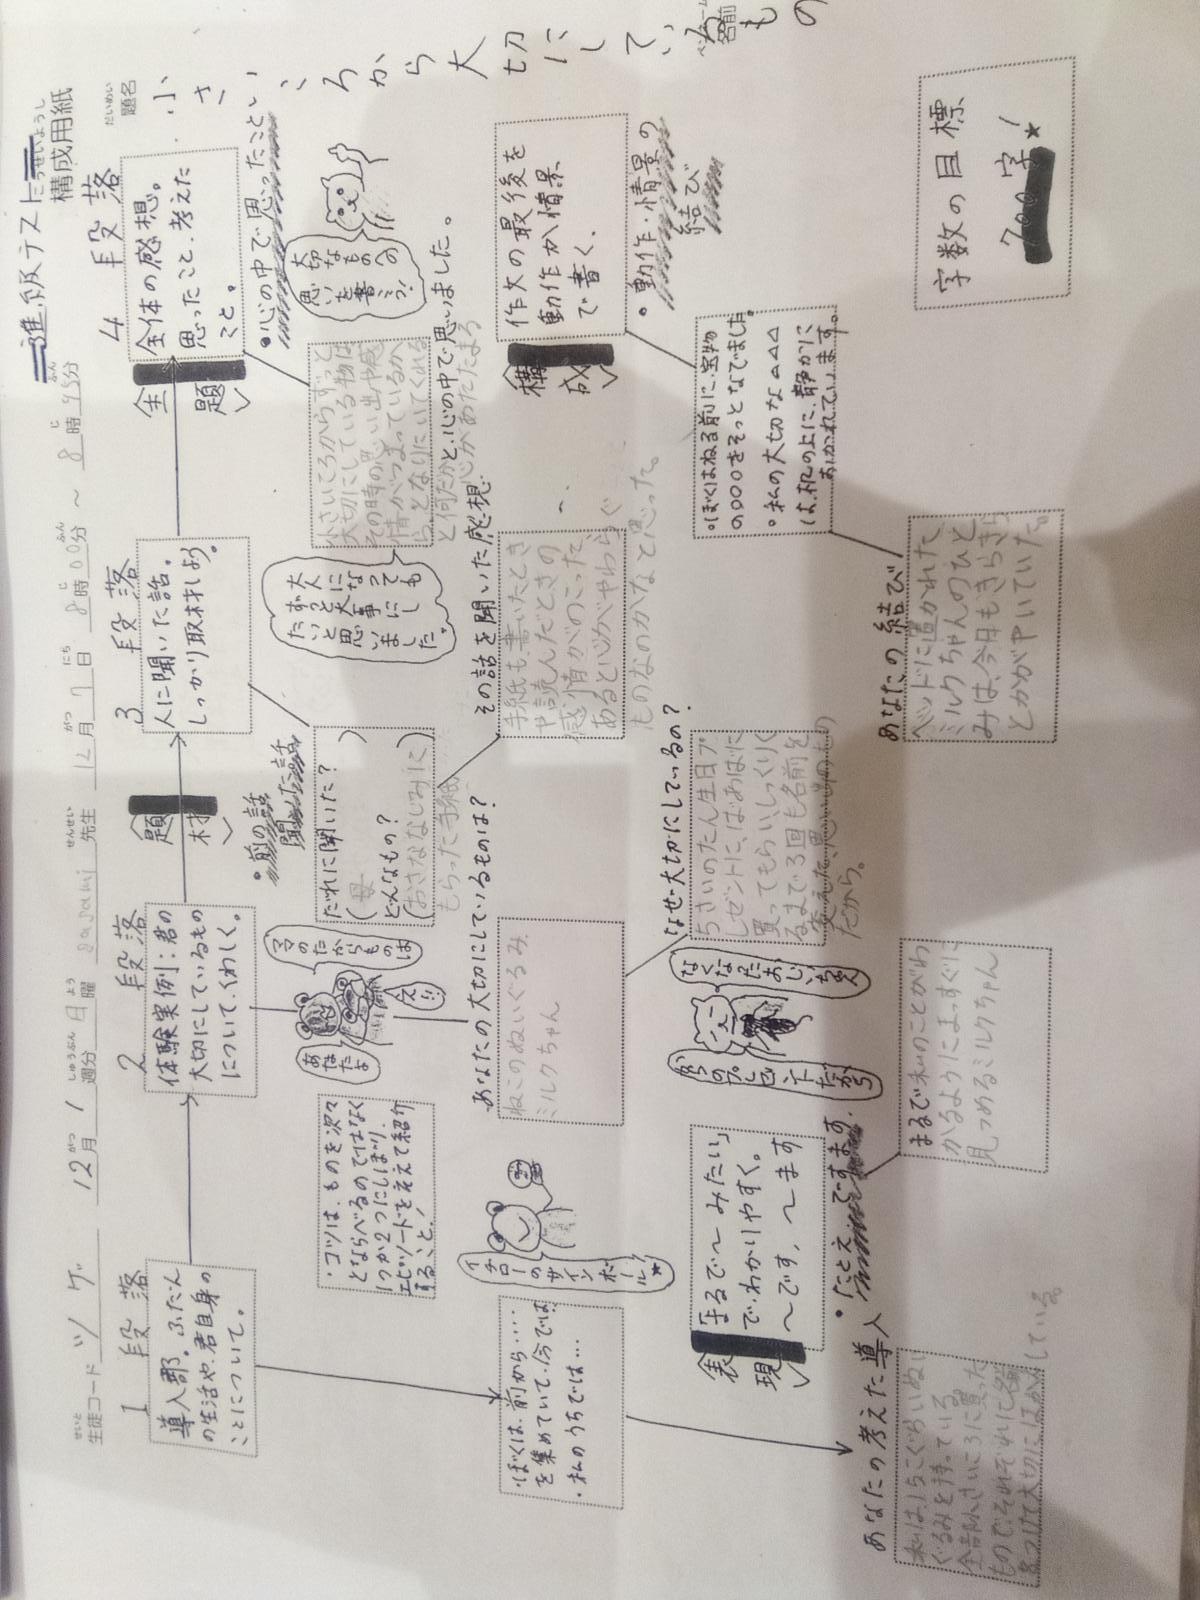 進級テスト
こうせいようし
構成用紙
せいと
生徒コード ツゲ
12月 1週分 日曜 sasami 先生 12月 7日 8時00分 ～ 8時45分
だいめい
題名
小さいころから大切にしているもの
1段落
導入部。ふだん
の生活や、君自身の
ことについて。
2段落
体験実例：君の
大切にしているもの
について、くわしく。
3段落
人に聞いた話。
しっかり取材しよう。
4段落
全体の感想。
思ったこと、考えた
こと。
題材
主題
・前の話
聞いた話
・心の中で思ったこと
・ぼくは、前から……
を集めていて、今では
・私のうちでは…
・コツは、ものを次々
とならべるのではなく
1つか2つにしぼり、
エピソードを交えて紹介
すること！
イチローのサインボール★
あなたよ
ママのたからものは
え!!
だれに聞いた？
（母）
どんなもの？
（おさななじみに
もらった手紙
大人になっても
ずっと大事にし
たいと思い
ました。
大切なものへの
思いを書こう！
小さいころからずっと
大切にしている物は
その時の思い出や感
情がつまっているか
ら、となりにいてくれる
と何だか心があたたまる
と、心の中で思いました。
あなたの大切にしているものは？
ねこのぬいぐるみ
ミルクちゃん
その話を聞いた感想
手紙も、書いたとき
や読んだときの
感情がのこった
あると心がやわらぐ
ものなのかなと思った。
構成
作文の最後を
動作か情景
で書く。
・動作・情景の
結び
・ぼくはねる前に、宝物
の○○○をそっとなでました。
・私の大切な△△△
は、机の上に、静かに
おかれています。
表現
「まるで～みたい」
で、わかりやすく。
～です、～ます
・たとえ ですます
なぜ大切にしているの？
ちさいのたん生日プ
レゼントに、ばあばに
買ってもらい、しっくりく
るまで3回も名前を
変えた思い出のもの
だから。
なくなったおじいちゃん
からのプレゼントだから
あなたの考えた導入
全部小さいころに買った
もので、それぞれに名前
をつけて大切にほかんしている。
まるで私のことがわ
かるようにまっすぐに
見つめるミルクちゃん
あなたの結び
ベッドに置かれた
ミルクちゃんのひと
みは、今日もきらきら
とかがやいていた。
字数の目標
700字！★